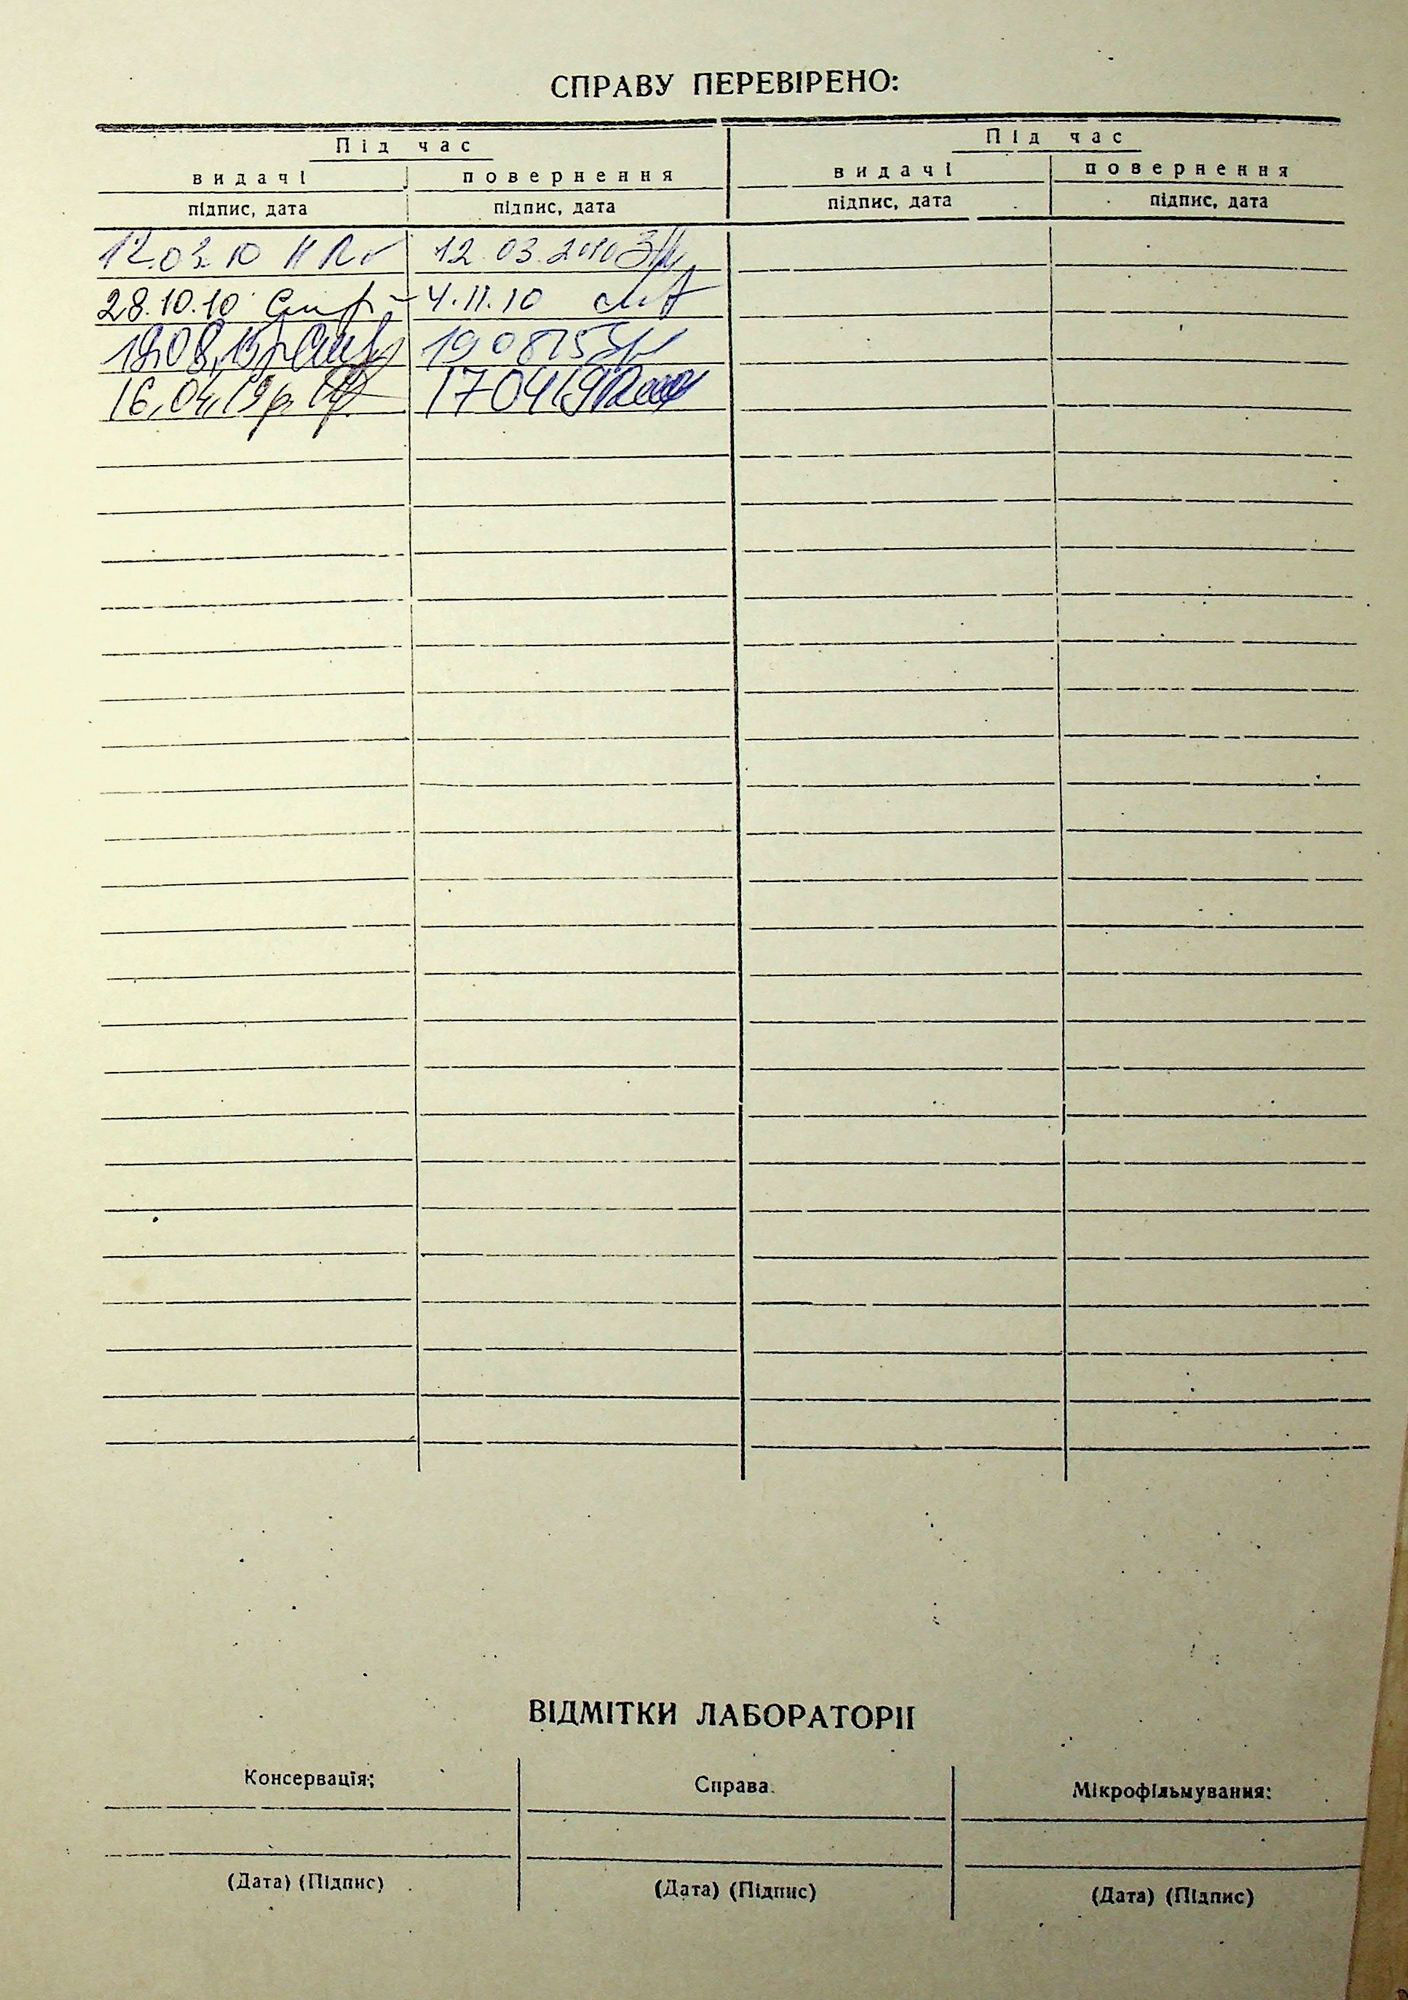 СПРАВУ ПЕРЕВІРЕНО:
Під час Під час
видачі повернення видачі повернення
підпис, дата підпис, дата підпис, дата підпис, дата
12.03.10 12.03.2010
28.10.10 4.11.10
19.08.15р 190815
16.04.19р. 170419
ВІДМІТКИ ЛАБОРАТОРІЇ
Консервація: Справа. Мікрофільмування:
(Дата) (Підпис) (Дата) (Підпис) (Дата) (Підпис)